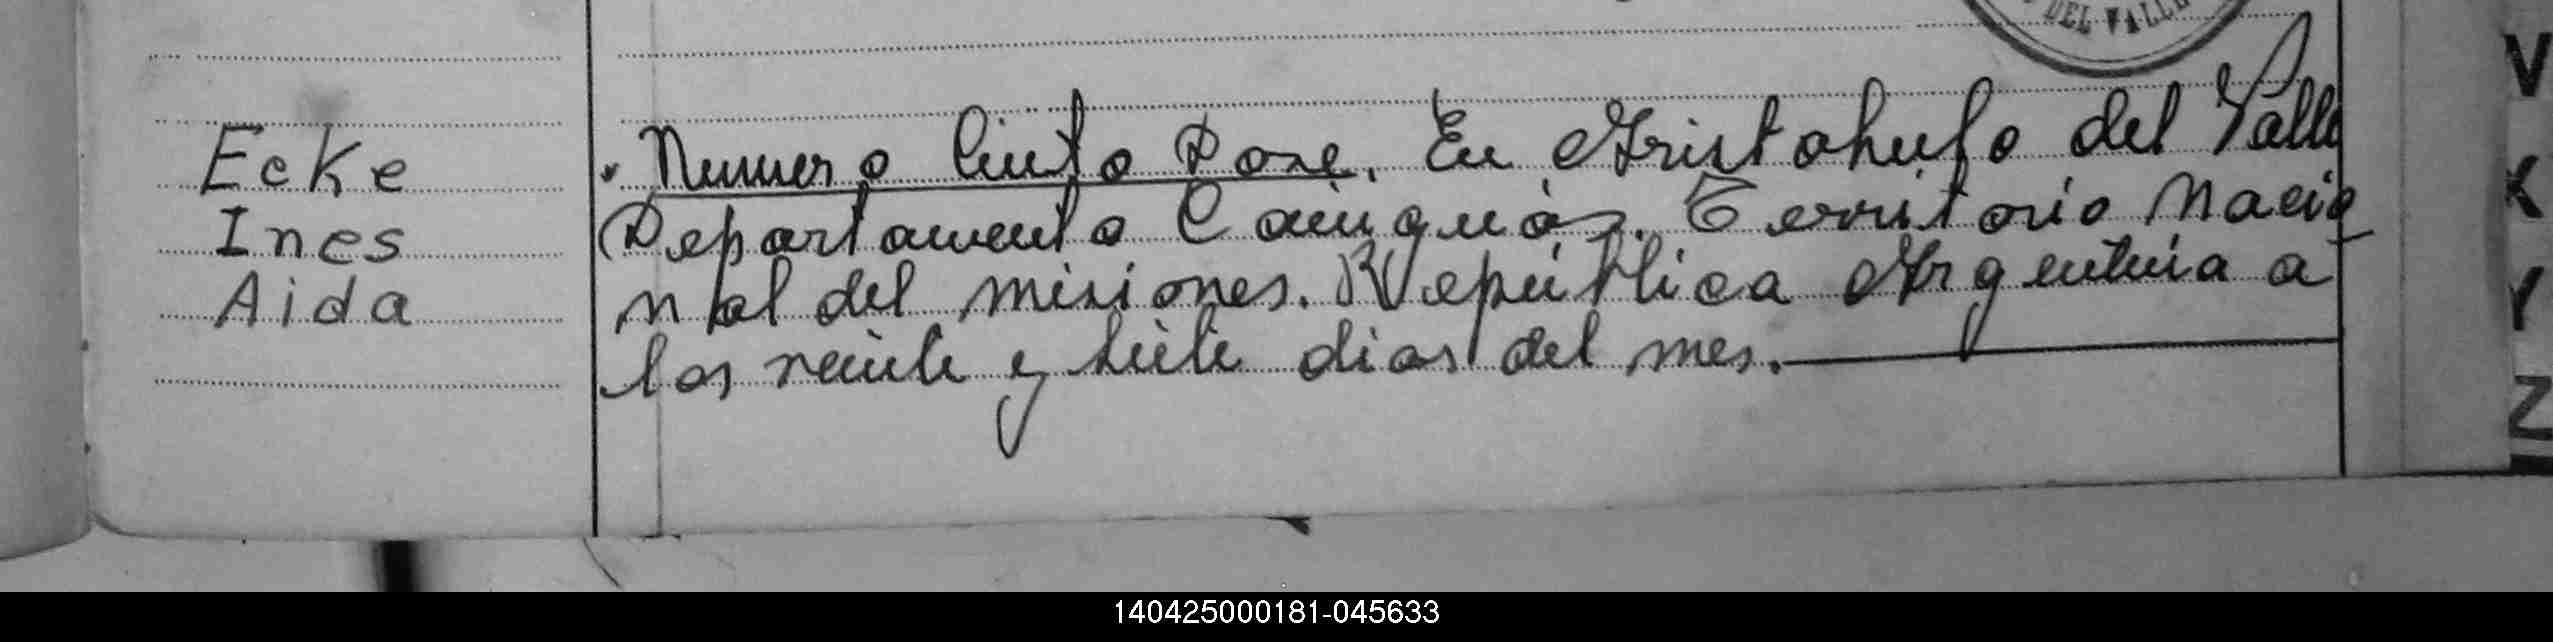 DEL VALLE
Ecke
Ines
Aida
Numero Ciento Doce. En Aristobulo del Valle
Departamento Cainguás. Territorio Nacio
nal del misiones. República Argentina a
los veinte y siete dias del mes.
V
K
Y
Z
140425000181-045633